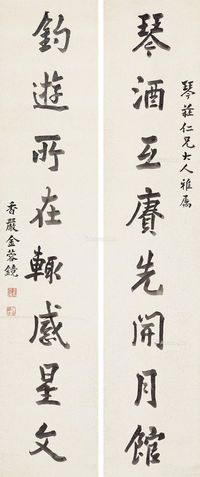 琴莊仁兄大人雅屬
琴酒互賡先開月館
釣遊所在輙感星文
香嚴金蓉鏡